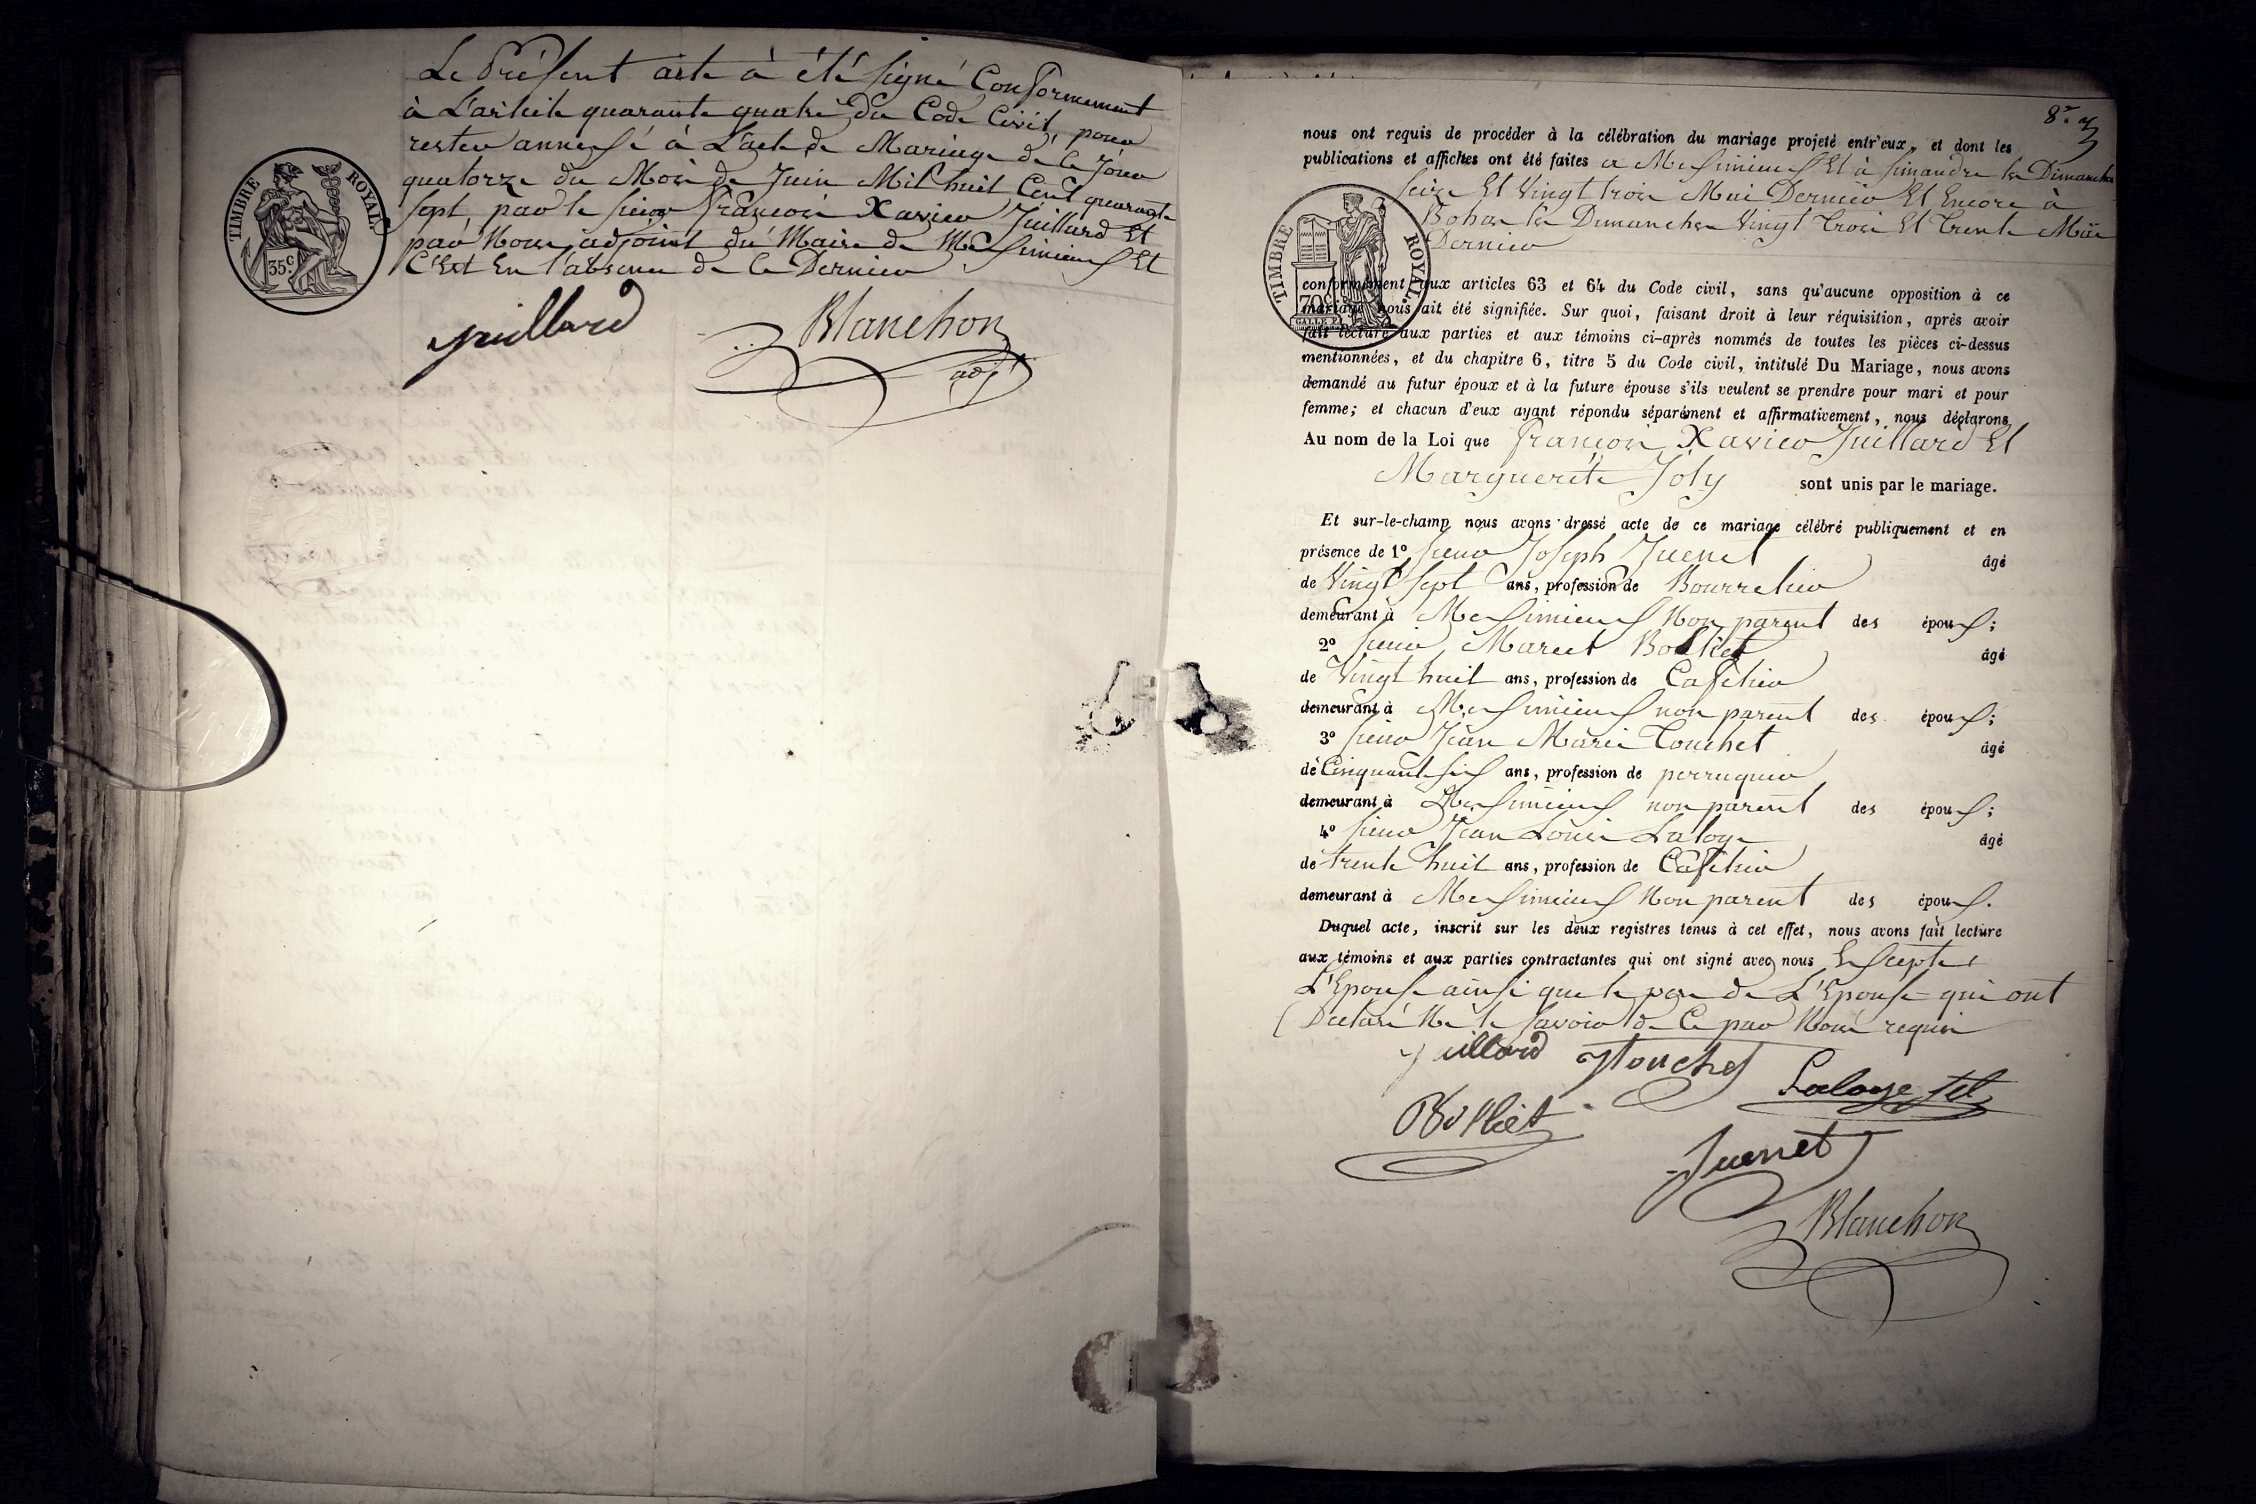 Le Présent acte à été signé Conformement
à L'article quarante quatre du Code Civil, pour
rester annexé à L'acte de Mariage de Ce Jour
quatorze du Mois de Juin Mil huit Cent quarante
sept, par le sieur François Xavier Juillard Et
par Nous adjoint du Maire de Meximieux Et
C'Est En l'absence de Ce Dernier
TIMBRE ROYAL
35 c
Juillard
Blanchon
adj
8e
nous ont requis de procéder à la célébration du mariage projeté entr'eux, et dont les
publications et affiches ont été faites a Meximieux Et à Simandre les Dimanches
seize Et Vingt trois Mai Dernier Et Encore à
Bohas les Dimanches Vingt trois Et trente Mai
Dernier
TIMBRE ROYAL
70 c
conformément aux articles 63 et 64 du Code civil, sans qu'aucune opposition à ce
mariage nous ait été signifiée. Sur quoi, faisant droit à leur réquisition, après avoir
fait lecture aux parties et aux témoins ci-après nommés de toutes les pièces ci-dessus
mentionnées, et du chapitre 6, titre 5 du Code civil, intitulé Du Mariage, nous avons
demandé au futur époux et à la future épouse s'ils veulent se prendre pour mari et pour
femme; et chacun d'eux ayant répondu séparément et affirmativement, nous déclarons
Au nom de la Loi que François Xavier Juillard Et
Marguerite Joly sont unis par le mariage.
Et sur-le-champ nous avons dressé acte de ce mariage célébré publiquement et en
présence de 1º sieur Joseph Juenet âgé
de Vingt sept ans, profession de Bourrelier
demeurant à Meximieux Non parent des époux;
2º sieur Marcel Bolliet âgé
de Vingt huit ans, profession de Cafetier
demeurant à Meximieux non parent des époux;
3º sieur Jean Marie Touchet âgé
de Cinquante six ans, profession de perruquier
demeurant à Meximieux non parent des époux;
4º sieur Jean Louis Laloge âgé
de trente huit ans, profession de Cafetier
demeurant à Meximieux Non parent des époux.
Duquel acte, inscrit sur les deux registres tenus à cet effet, nous avons fait lecture
aux témoins et aux parties contractantes qui ont signé avec nous Excepté
L'Epouse ainsi que le pere de L'Epouse qui ont
Declaré Ne le savoir de Ce par Nous requis
Juillard Touchet
Laloge
Bolliet
Juenet
Blanchon